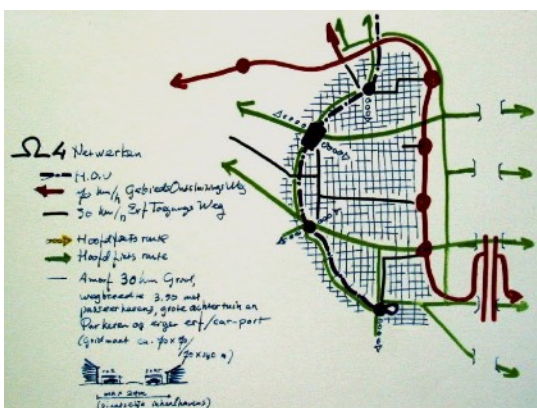 Ω 4 Netwerken
H.O.V
70 km/h Gebieds Ontsluitings Weg
30 km/h Erf Toegangs Weg
Hoofdfiets route
Hoofdfiets route
Amorf 30 km Grid,
wegbreedte 3.50 met
passeerhavens, grote achtertuin en
Parkeren op eigen erf/car-port
(Gridmaat ca. 70 x 70/
max